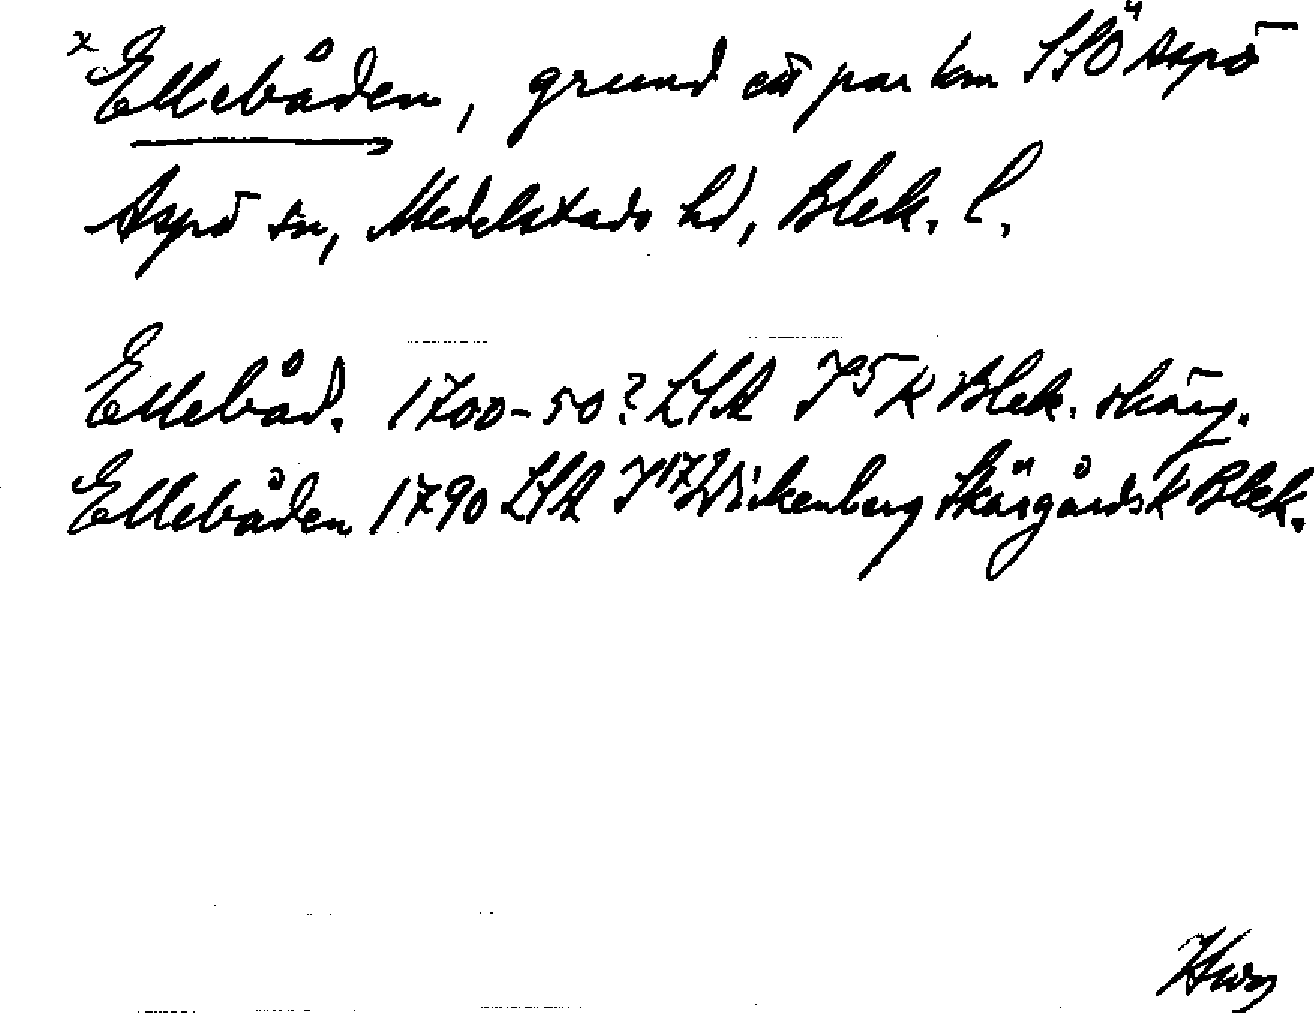 x Ellebåden, grund ett par km SSÖ Aspö
Aspö sn, Medelstads hd, Blek. l.
Ellebåd. 1700-50? LSA J5 K Blek. skärg.
Ellebåden 1790 LSA J17 Wickenberg Skärgårdsk Blek.